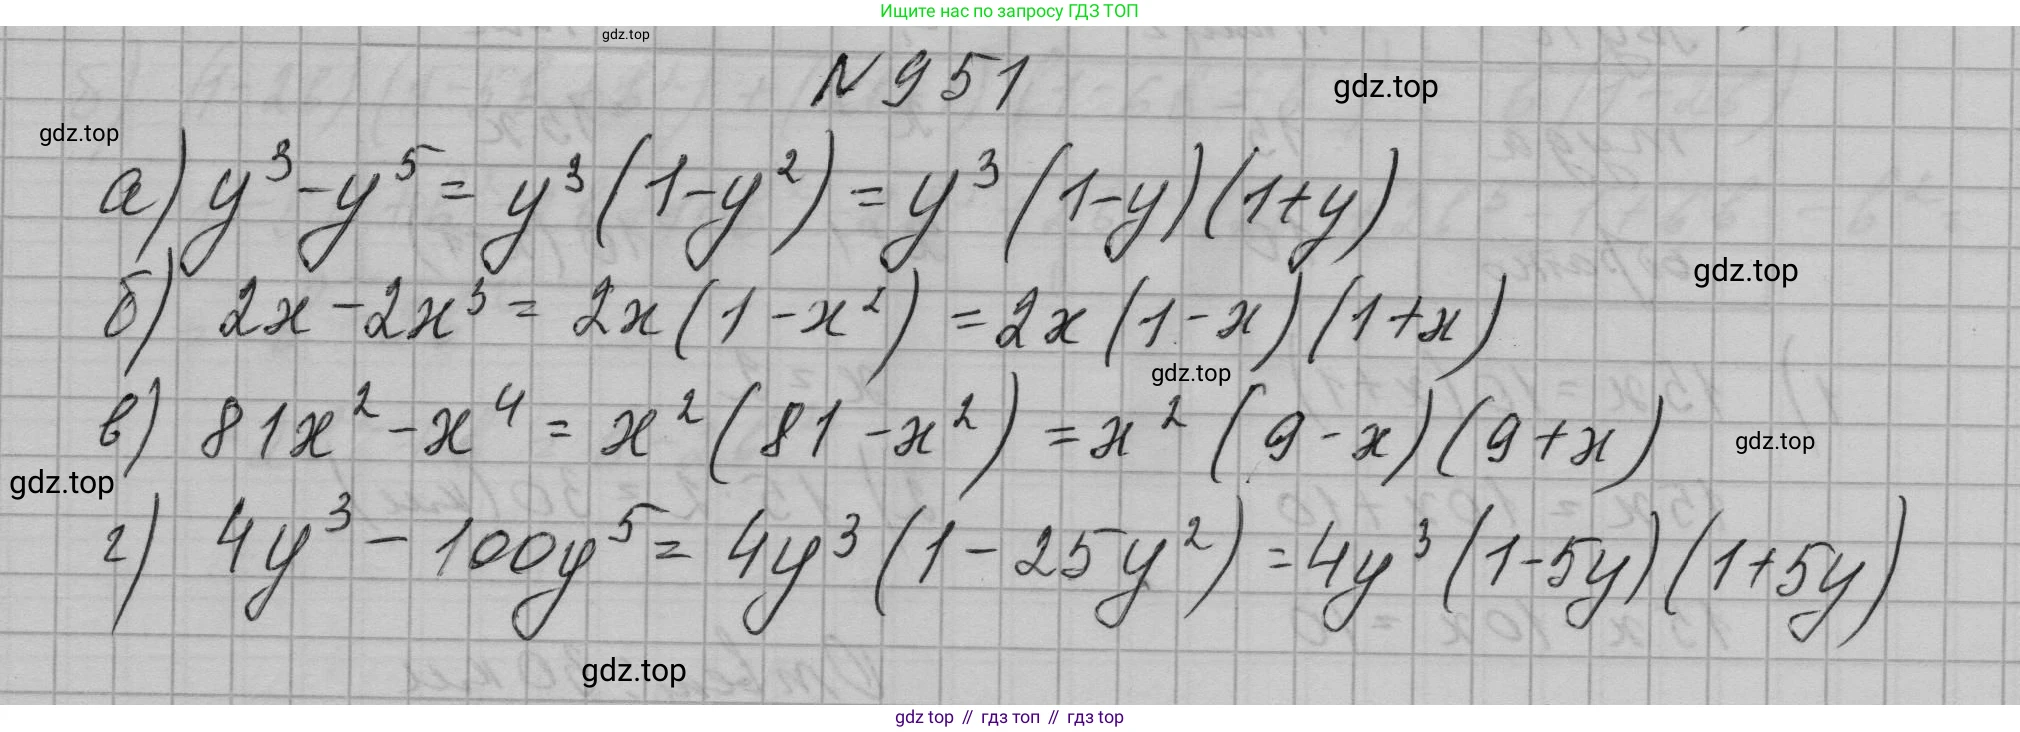 Ищите нас по запросу ГДЗ ТОП
gdz.top
N 951
gdz.top
gdz.top
а) y³ - y⁵ = y³ (1 - y²) = y³ (1 - y) (1 + y)
gdz.top
б) 2x - 2x³ = 2x (1 - x²) = 2x (1 - x) (1 + x)
gdz.top
в) 81x² - x⁴ = x² (81 - x²) = x² (9 - x) (9 + x)
gdz.top
gdz.top
г) 4y³ - 100y⁵ = 4y³ (1 - 25y²) = 4y³ (1 - 5y) (1 + 5y)
gdz.top
gdz top // гдз топ // гдз top